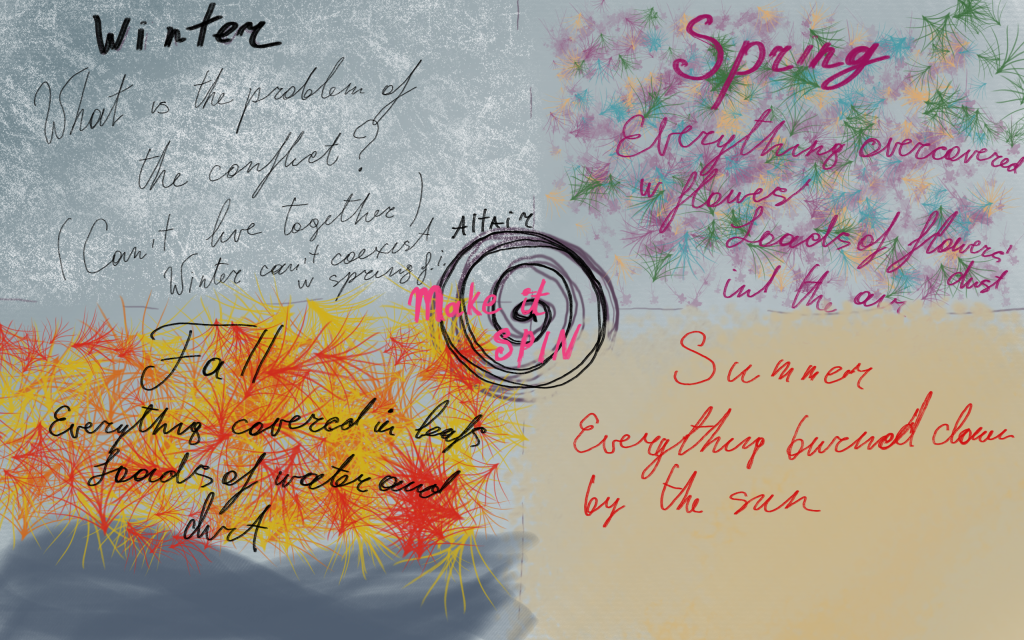 Winter
What is the problem of
the conflict?
(Can't live together)
Winter can't coexist
w spring f.i.
Altair
Make it
SPIN
Spring
Everything overcovered
w flowes'
Loads of flowers'
dust
int the air
Fall
Everything covered in leafs
Loads of water and
dirt
Summer
Everything burned down
by the sun